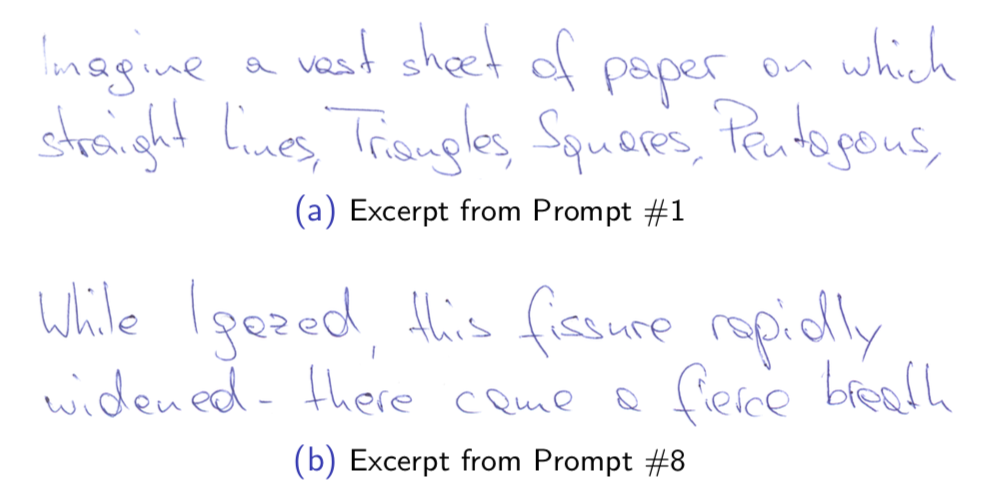 Imagine a vast sheet of paper on which
straight Lines, Triangles, Squares, Pentagons,
(a) Excerpt from Prompt #1
While I gazed, this fissure rapidly
widened - there came a fierce breath
(b) Excerpt from Prompt #8